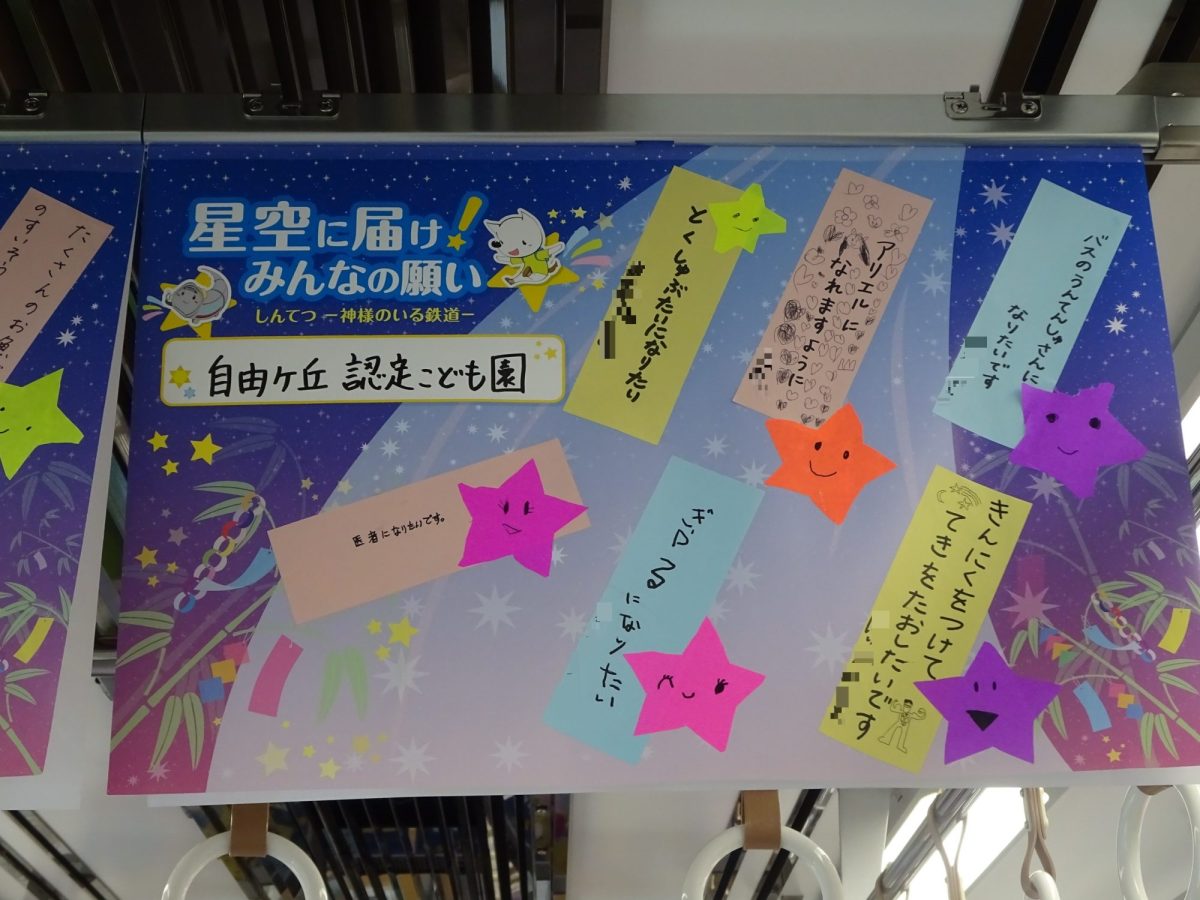 星空に届け!
みんなの願い
しんてつ ー神様のいる鉄道ー
自由ケ丘 認定こども園
とくしゅぶたいになりたい
アリエルに
なれますように
バスのうんてんしゅさんに
なりたいです
医者になりたいです。
ぎゃるになりたい
きんにくをつけて
てきをたおしたいです
たくさんのお魚
のすいそう